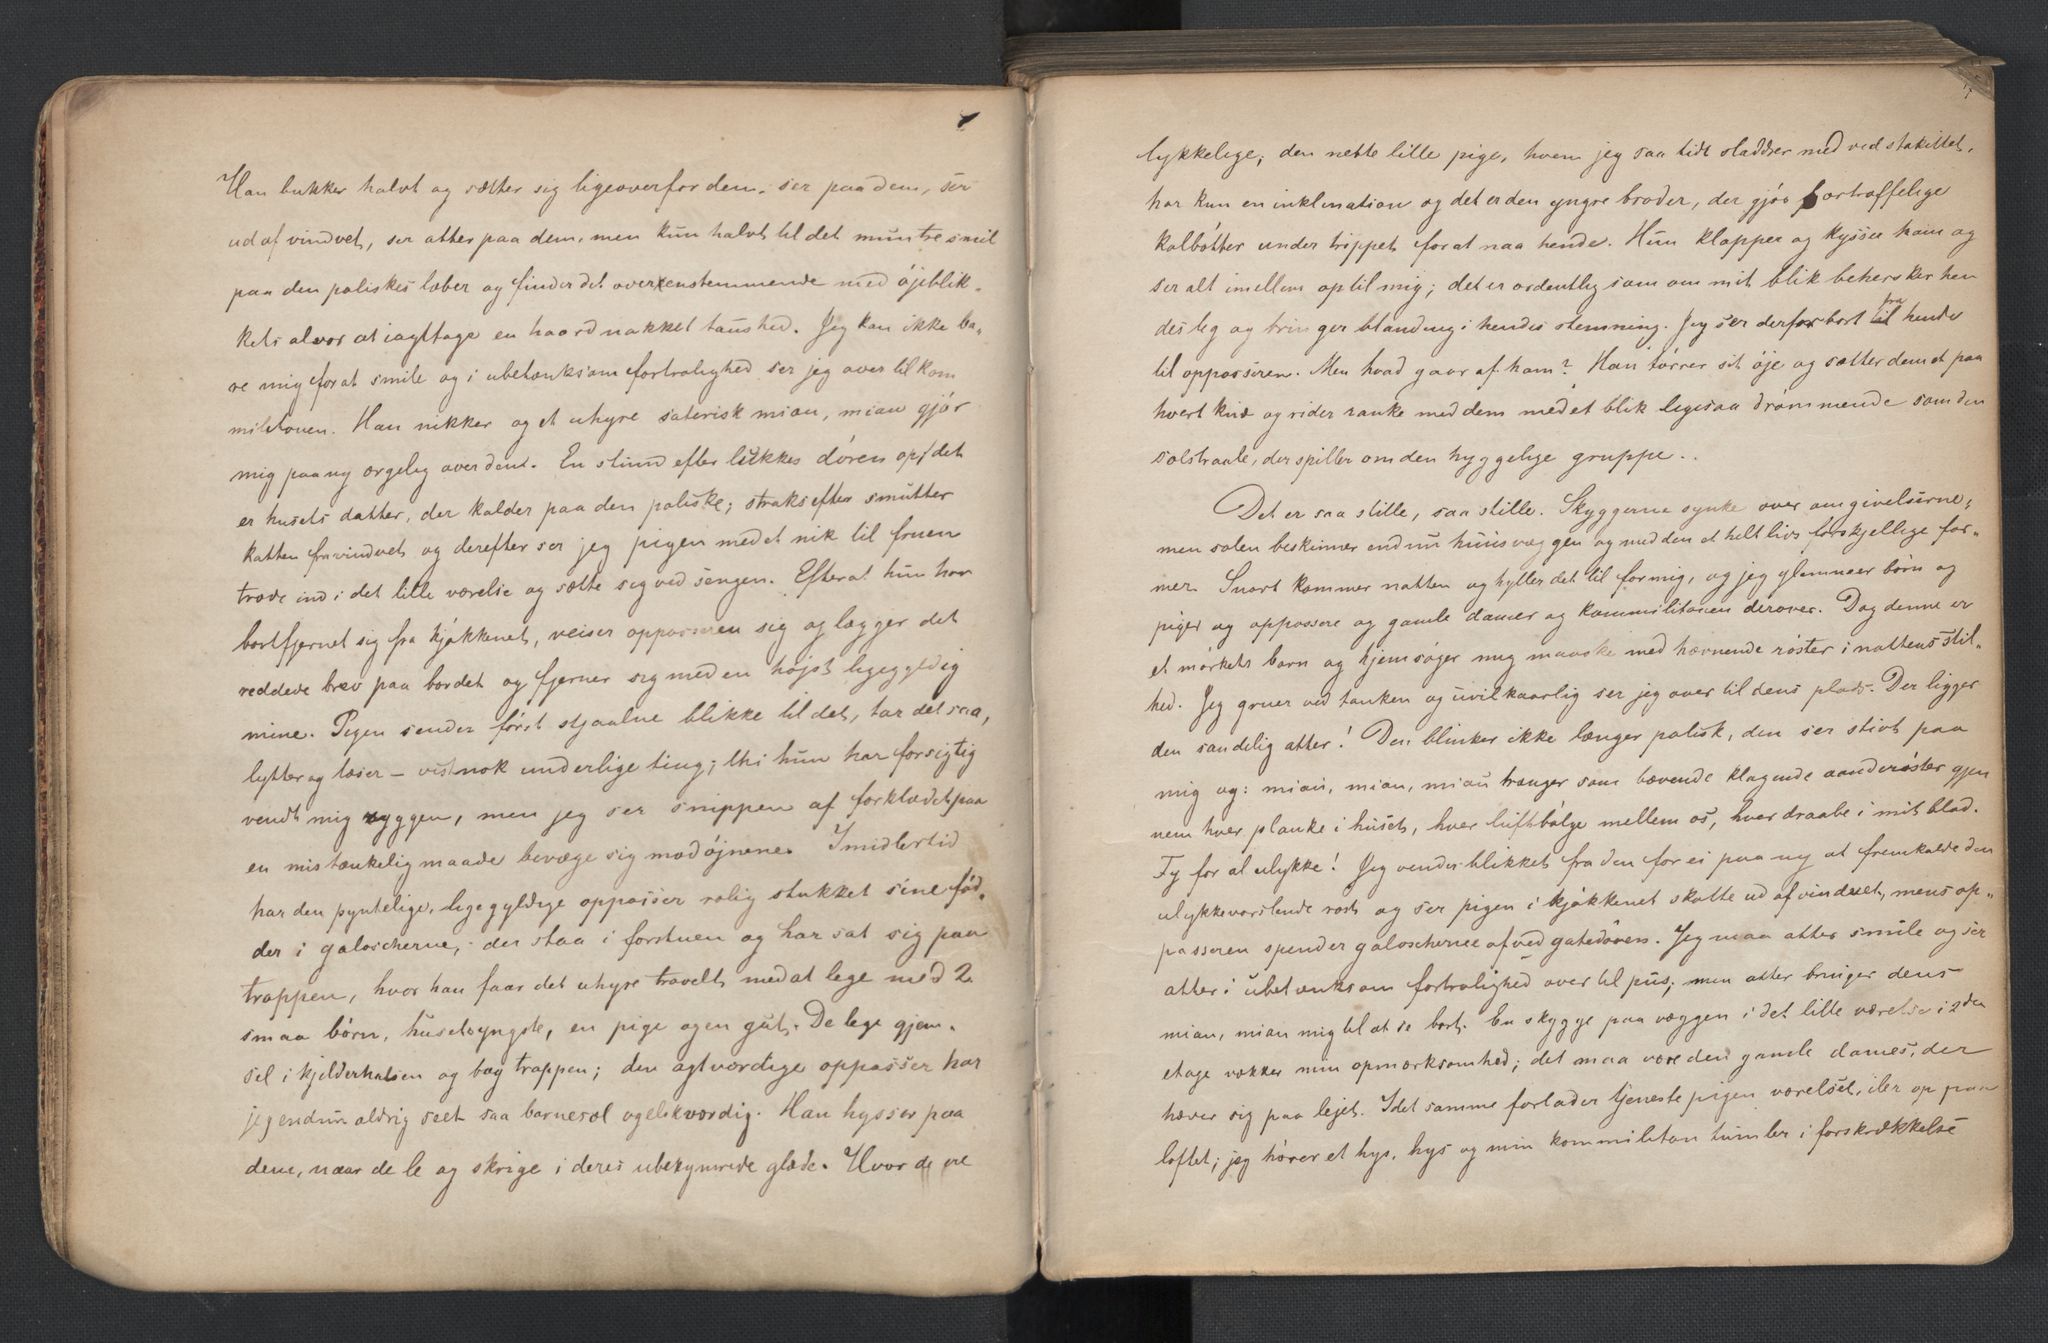 Han bukker halvt og sætter sig ligeoverfor dem, ser paa dem, ser
ud af vinduet, ser atter paa dem, men kun halvt til det muntre smil
paa den poliskes læber og finder det overenstemmende med øjeblik-
kets alvor at iagttage en haardnakket taushed. Jeg kan ikke ba-
re mig for at smile og i ubetænksom fortrolighed ser jeg over til kom
militonen. Han nikker og et uhyre saterisk miau, miau gjør
mig paany ærgelig over dem. En stund efter lukkes døren op, det
er husets datter, der kalder paa den poliske; straks efter smutter
katten fra vinduet og derefter ser jeg pigen med et nik til fruen
træde ind i det lille værelse og sætte sig ved sengen. Efterat hun har
bortfjernet sig fra kjøkkenet, reiser oppasseren sig og lægger det
reddede brev paa bordet og fjerner sig med en højst ligegyldig
mine. Pigen sender først stjaalne blikke til det, tar det saa,
lytter og læser – vistnok underlige ting; thi hun har forsigtig
vendt mig ryggen, men jeg ser snippen af forklædet paa
en mistænkelig maade bevæge sig mod øjnene. Imidlertid
har den pyntelige, ligegyldige oppasser rolig stukket sine fød-
der i galoscherne, der staa i forstuen og har sat sig paa
trappen, hvor han faar det uhyre travelt med at lege med 2
smaa børn, husets yngste, en pige og en gut. De lege gjem-
sel i kjelderhalsen og bag trappen; den agtværdige oppasser har
jeg endnu aldrig seet saa barnesæl og elskværdig. Han hysser paa
dem, naar de le og skrige i deres ubekymrede glæde. Hvor de ere
lykkelige; den nette lille pige, hvem jeg saa tidt sladdrer med ved stakittet,
har kun en inklination og det er den yngre broder, der gjør fortræffelige
kolbøtter under trippet for at naa hende. Hun klapper og kysser ham og
ser alt imellem op til mig; det er ordentlig som om mit blik behersker hen
des leg og bringer blanding i hendes stemning. Jeg ser derfor bort fra hende
til oppasseren. Men hvad gaar af ham? Han tørrer sit øje og sætter dem et paa
hvert knæ og rider ranke med dem med et blik ligesaa drømmende som den
solstraale, der spiller om den hyggelige gruppe..
Det er saa stille, saa stille. Skyggerne synke over omgivelserne,
men solen beskinner endnu husvæggen og med den et helt livs forskjellige for-
mer. Snart kommer natten og hyller det til for mig, og jeg glemmer børn og
piger og oppassere og gamle damer og kommilitonen derover. Dog denne er
et mørkets barn og hjemsøger mig maaske med hævnende røster i nattens stil-
hed. Jeg gruer ved tanken og uvilkaarlig ser jeg over til dens plads. Der ligger
den sandelig atter! Den blinker ikke længer polisk, den ser stivt paa
mig og: miau, miau, miau trænger som bævende klagende aanderøster gjen
nem hver planke i huset, hver luftbølge mellem os, hver draabe i mit blod.
Fy for al ulykke! Jeg vender blikket fra den for ei paa ny at fremkalde den
ulykkevarslende røst og ser pigen i kjøkkenet skotte ud af vinduet, mens op-
passeren spender galoscherne af ved gatedøren. Jeg maa atter smile og ser
atter i ubetænksom fortrolighed over til pus; men atter bringer dens
miau, miau mig til at se bort. En skygge paa væggen i det lille værelse i 2den
etage vækker min opmærksomhed; det maa være den gamle dames, der
hæver sig paa lejet. I det samme forlader tjenestepigen værelset, iler op paa
loftet; jeg hører et hys, hys og min kommiliton tumler i forskrækkelse